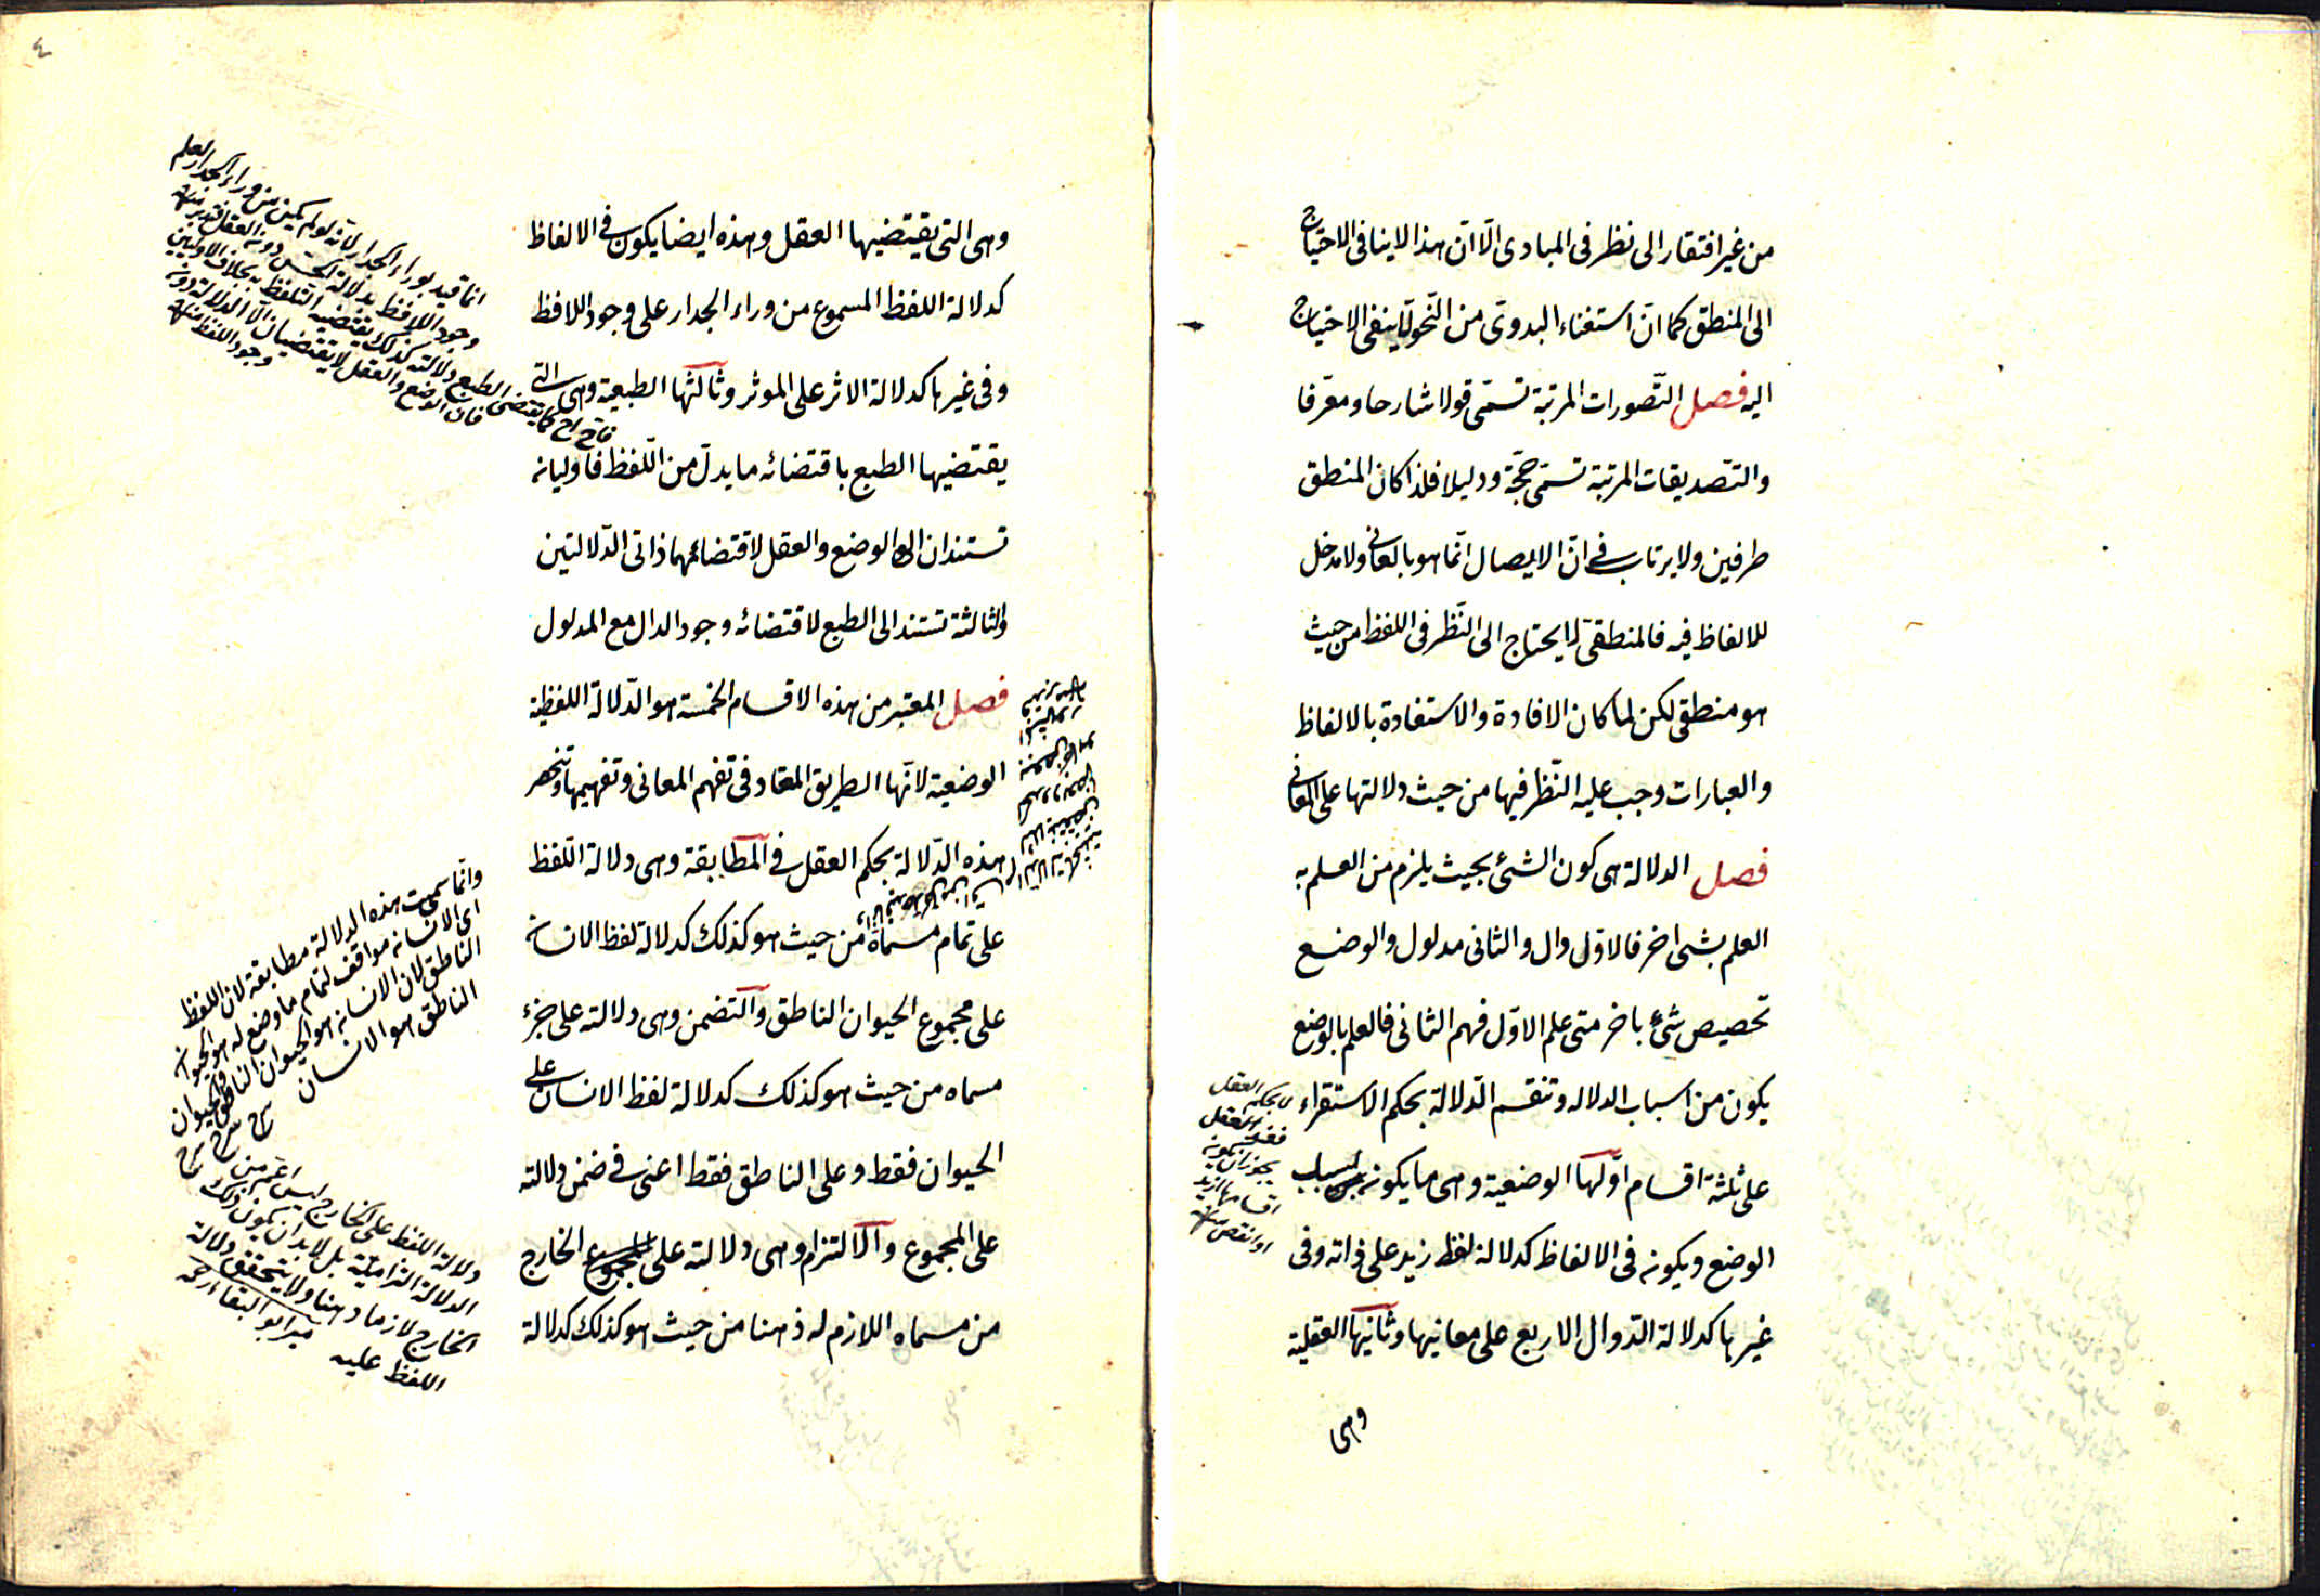 من غير افتقار الى نظر فى المبادى الّا انّ هذا لا ينافى الاحتياج
الى المنطق كما انّ استغناء البدوىّ من النّحو لا ينفى الاحتياج
اليه فصل التّصورات المرتبة تسمّى قولا شارحا ومعرّفا
والتّصديقات المرتبة تسمّى حجّة ودليلا فلذا كان المنطق
طرفين ولا يرتاب فى انّ الايصال انّما هو بالمعانى ولا مدخل
للالفاظ فيه فالمنطقىّ لا يحتاج الى النّظر فى اللفظ من حيث
هو منطقى لكن لما كان الافادة والاستفادة بالالفاظ
والعبارات وجب عليه النّظر فيها من حيث دلالتها على المعانى
فصل الدلالة هى كون الشئ بحيث يلزم من العلم به
العلم بشى اخر فالاول دال والثانى مدلول والوضع
تخصيص شئ باخر متى علم الاوّل فهم الثانى فالعلم بالوضع
يكون من اسباب الدلاله وتنقسم الدّلالة بحكم الاستقراء
على ثلثة اقسام اوّلها الوضعية وهى ما يكون بسبب
الوضع ويكون فى الالفاظ كدلالة لفظ زيد على ذاته وفى
غيرها كدلالة الدّوال الاربع على معانيها وثانيها العقلية
وهى
لا بحكم العقل
العقل
يجوز ان يكون
اقسامها ازيد
او انقص منه
٤
وهى التى يقتضيها العقل وهذه ايضا يكون فى الالفاظ
كدلالة اللفظ المسموع من وراء الجدار على وجود اللافظ
وفى غيرها كدلالة الاثر على الموثر وثالثها الطبعية وهى التى
يقتضيها الطبع باقتضائه ما يدلّ من اللّفظ فاوليان
تستندان الى الوضع والعقل لاقتضائهما ذاتى الدّلالتين
والثالثة تستند الى الطبع لاقتضائه وجود الدال مع المدلول
فصل المعتبر من هذه الاقسام الخمسة هو الدّلالة اللفظية
الوضعية لانّها الطريق المعتاد فى تفهم المعانى وتفهيمها وتنحصر
هذه الدّلالة بحكم العقل فى المطابقة وهى دلالة اللّفظ
على تمام مسماه من حيث هو كذلك كدلالة لفظ الانسان
على مجموع الحيوان الناطق والتضمن وهى دلالته على جزء
مسماه من حيث هو كذلك كدلالة لفظ الانسان على
الحيوان فقط وعلى الناطق فقط اعنى فى ضمن دلالته
على المجموع والالتزام وهى دلالته على المجموع الخارج
من مسماه اللازم له ذهنا من حيث هو كذلك كدلالة
انما قيد بوراء الجدار لانه لو لم يكن من وراء الجدار لعلم
وجود اللافظ بدلالة الحس دون العقل فتدبر منه
كما يقتضى الطبع دلالته كذلك يقتضيه التلفظ به بخلاف الاوليين
فان الوضع والعقل لا يقتضيان الا الدلالة دون
وجود اللفظ منه
وانما سميت هذه الدلالة مطابقة لان اللفظ
اى الانسان موافق لتمام ما وضع له هو الحيوان
الناطق لان الانسان هو الحيوان الناطق والحيوان
الناطق هو الانسان
دلالة اللفظ على الخارج ليس اعم من
الدلالة التزامية بل لابد ان يكون ذلك
الخارج لازما ذهنا ولا يتحقق دلالة
اللفظ عليه مير ابو البقاء رحمه